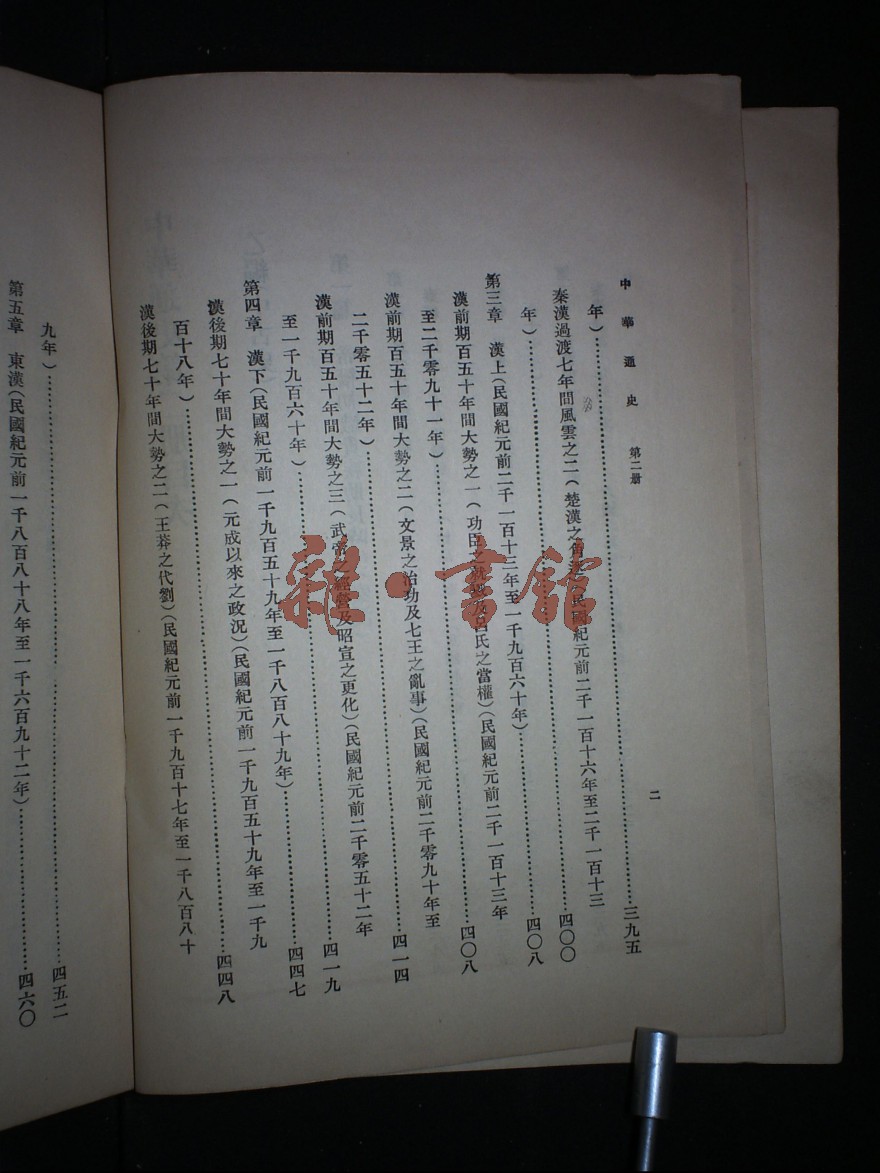 中華通史 第二册 二
年）……三九五
秦漢過渡七年間風雲之二（楚漢之角）（民國紀元前二千一百十六年至二千一百十三
年）……四〇〇
第三章 漢上（民國紀元前二千一百十三年至一千九百六十年）……四〇八
漢前期百五十年間大勢之一（功臣之就戮及呂氏之當權）（民國紀元前二千一百十三年
至二千零九十一年）……四〇八
漢前期百五十年間大勢之二（文景之治功及七王之亂事）（民國紀元前二千零九十年至
二千零五十二年）……四一四
漢前期百五十年間大勢之三（武帝之經營及昭宣之更化）（民國紀元前二千零五十二年
至一千九百六十年）……四一九
第四章 漢下（民國紀元前一千九百五十九年至一千八百八十九年）……四四七
漢後期七十年間大勢之一（元成以來之政況）（民國紀元前一千九百五十九年至一千九
百十八年）……四四八
漢後期七十年間大勢之二（王莽之代劉）（民國紀元前一千九百十七年至一千八百八十
九年）……四五二
第五章 東漢（民國紀元前一千八百八十八年至一千六百九十二年）……四六〇
雜·書館